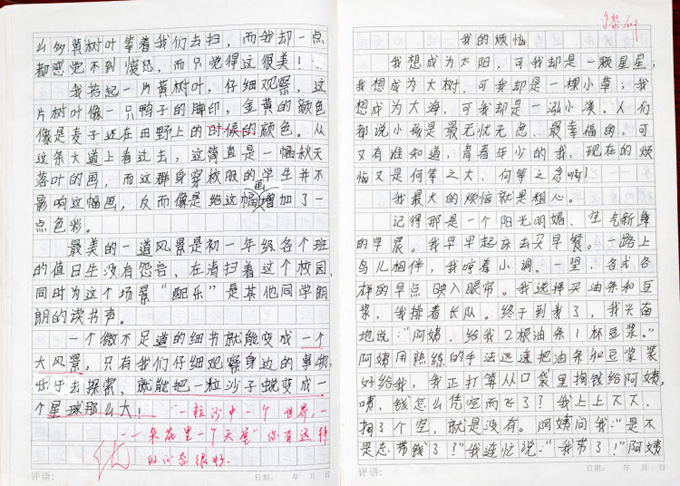 么多黄树叶等着我们去扫，而我却一点
都感觉不到愤怒，而只觉得这很美！
我拾起一片黄树叶，仔细观察，这
片树叶像一只鸭子的脚印，金黄的颜色
像是麦子还在田野上的时候的颜色。从
这条大道上看过去，这简直是一幅秋天
落叶的画，而这群身穿校服的学生并不
影响这幅画，反而像是给这幅画增加了一
点色彩。
最美的一道风景是初一年级各个班
的值日生没有怨言，在清扫着这个校园，
同时为这个场景“配乐”是其他同学朗
朗的读书声。
一个微不足道的细节就能变成一个
大风景。只有我们仔细观察身边的事物，
乐于去探索，就能把一粒沙子蜕变成一
个星球那么大！
“一粒沙中一个世界，一
一朵花里一个天堂”你有这样
的心态很好。
优
评语：
日期： 年 月 日
我的烦恼
我想成为太阳，可我却是一颗星星；
我想成为大树，可我却是一棵小草；我
想成为大海，可我却是一泓小溪。人们
都说小孩是最无忧无虑、最幸福的，可
又有谁知道，青春年少的我，现在的烦
恼又是何等之大、何等之急啊！
我最大的烦恼就是粗心。
记得那是一个阳光明媚、空气新鲜
的早晨。我早早起床去买早餐。一路上
鸟儿相伴，我哼着小调。一望，各式各
样的早点映入眼帘。我选择买油条和豆
浆，我排着长队。终于到我了，我兴奋
地说：“阿姨，给我2根油条1杯豆浆。”
阿姨用熟练的手法迅速把油条和豆浆装
好给我，我正打算从口袋里掏钱给阿姨，
咦，钱怎么凭空而飞了？我上上下下，
掏了个空，就是没有。阿姨问我：“是不
是忘带钱了？”我连忙说：“我带了！”阿姨
评语：
日期： 年 月 日